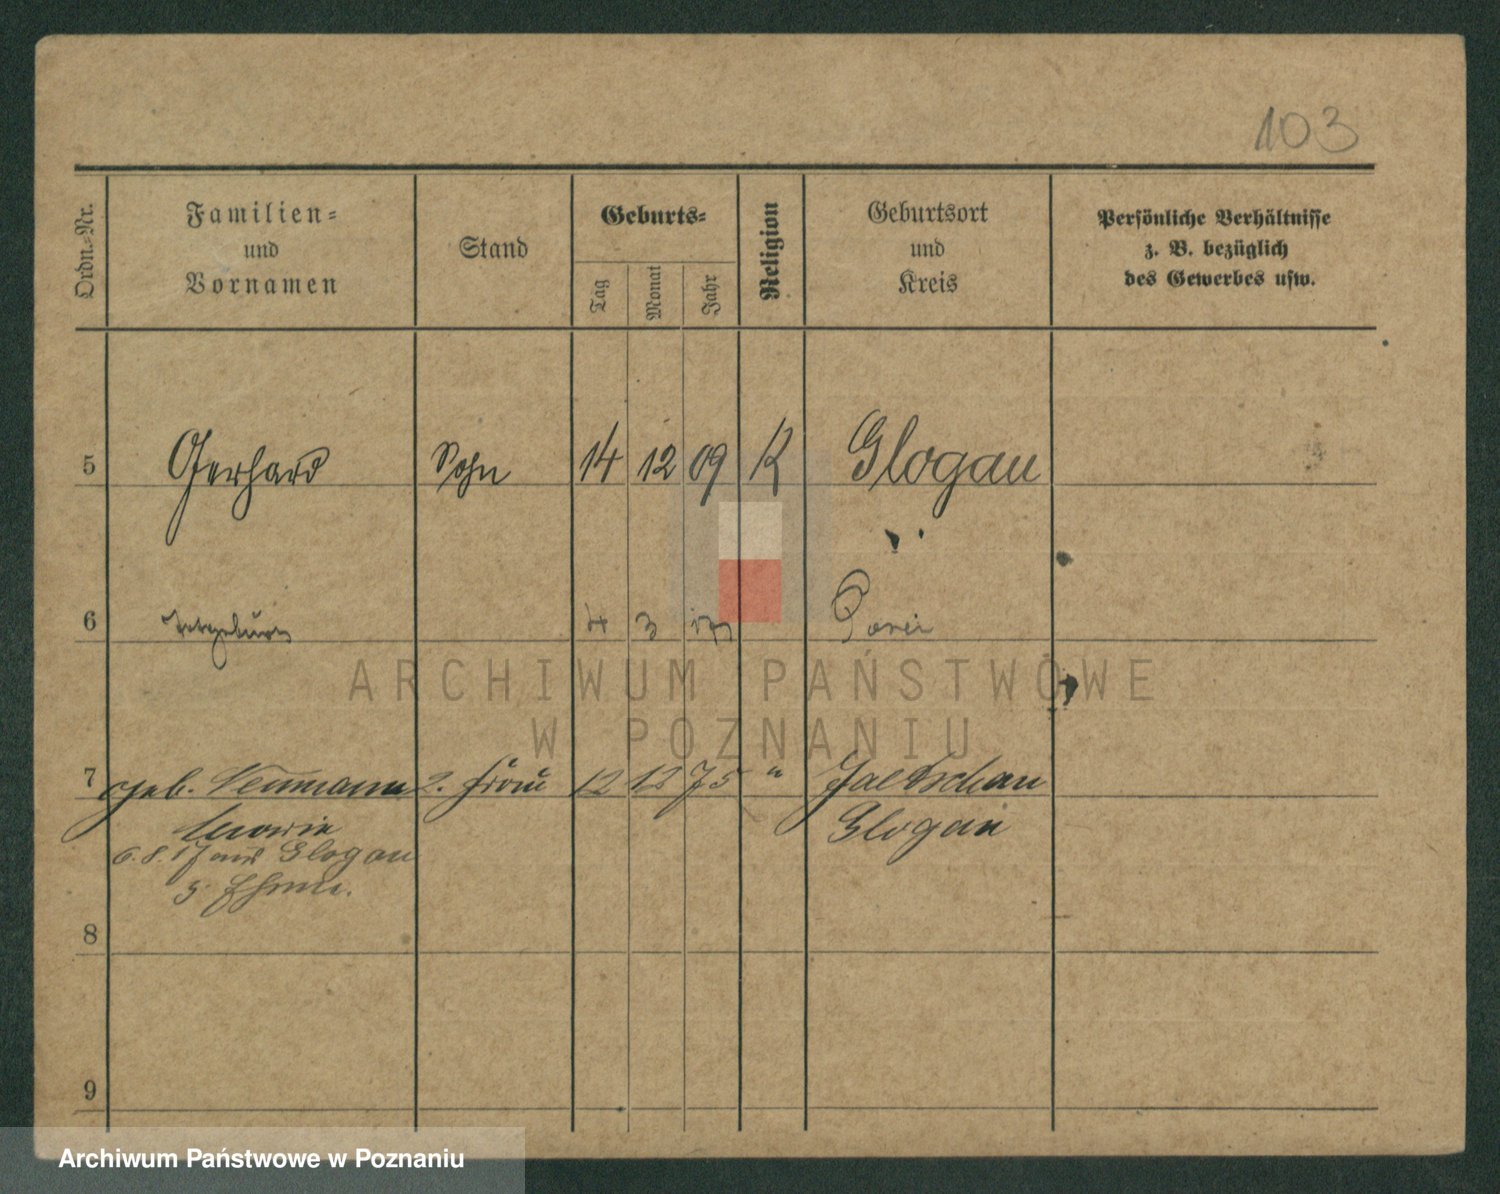 103
Ordn.-Nr.
Familien-
und
Vornamen
Stand
Geburts-
Tag
Monat
Jahr
Religion
Geburtsort
und
Kreis
Persönliche Verhältnisse
z. B. bezüglich
des Gewerbes usw.
5 Gerhard Sohn 14 12 09 K Glogau
6 4 3
7 geb. Neumann 2. Frau 12 12 75 " Jaetschau
Maria Glogau
6. 8. 17 aus Glogau
8
9
ARCHIWUM PAŃSTWOWE
W POZNANIU
Archiwum Państwowe w Poznaniu